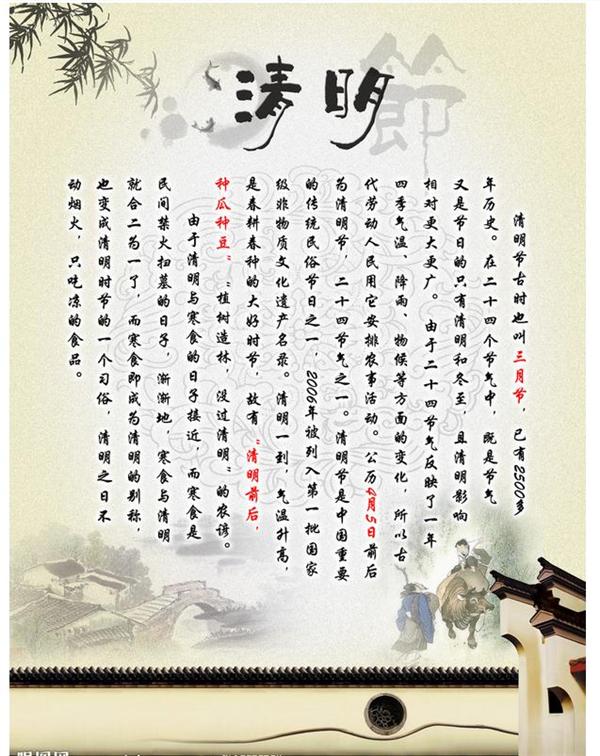 清明
節
清明节古时也叫三月节，已有2500多
年历史。在二十四个节气中，既是节气
又是节日的只有清明和冬至，且清明影响
相对更大更广。由于二十四节气反映了一年
四季气温、降雨、物候等方面的变化，所以古
代劳动人民用它安排农事活动。公历4月5日前后
为清明节，二十四节气之一。清明节是中国重要
的传统民俗节日之一，2006年被列入第一批国家
级非物质文化遗产名录。清明一到，气温升高，
是春耕春种的大好时节，故有“清明前后，
种瓜种豆”、“植树造林，没过清明”的农谚。
由于清明与寒食的日子接近，而寒食是
民间禁火扫墓的日子，渐渐地，寒食与清明
就合二为一了，而寒食即成为清明的别称，
也变成清明时节的一个习俗，清明之日不
动烟火，只吃凉的食品。